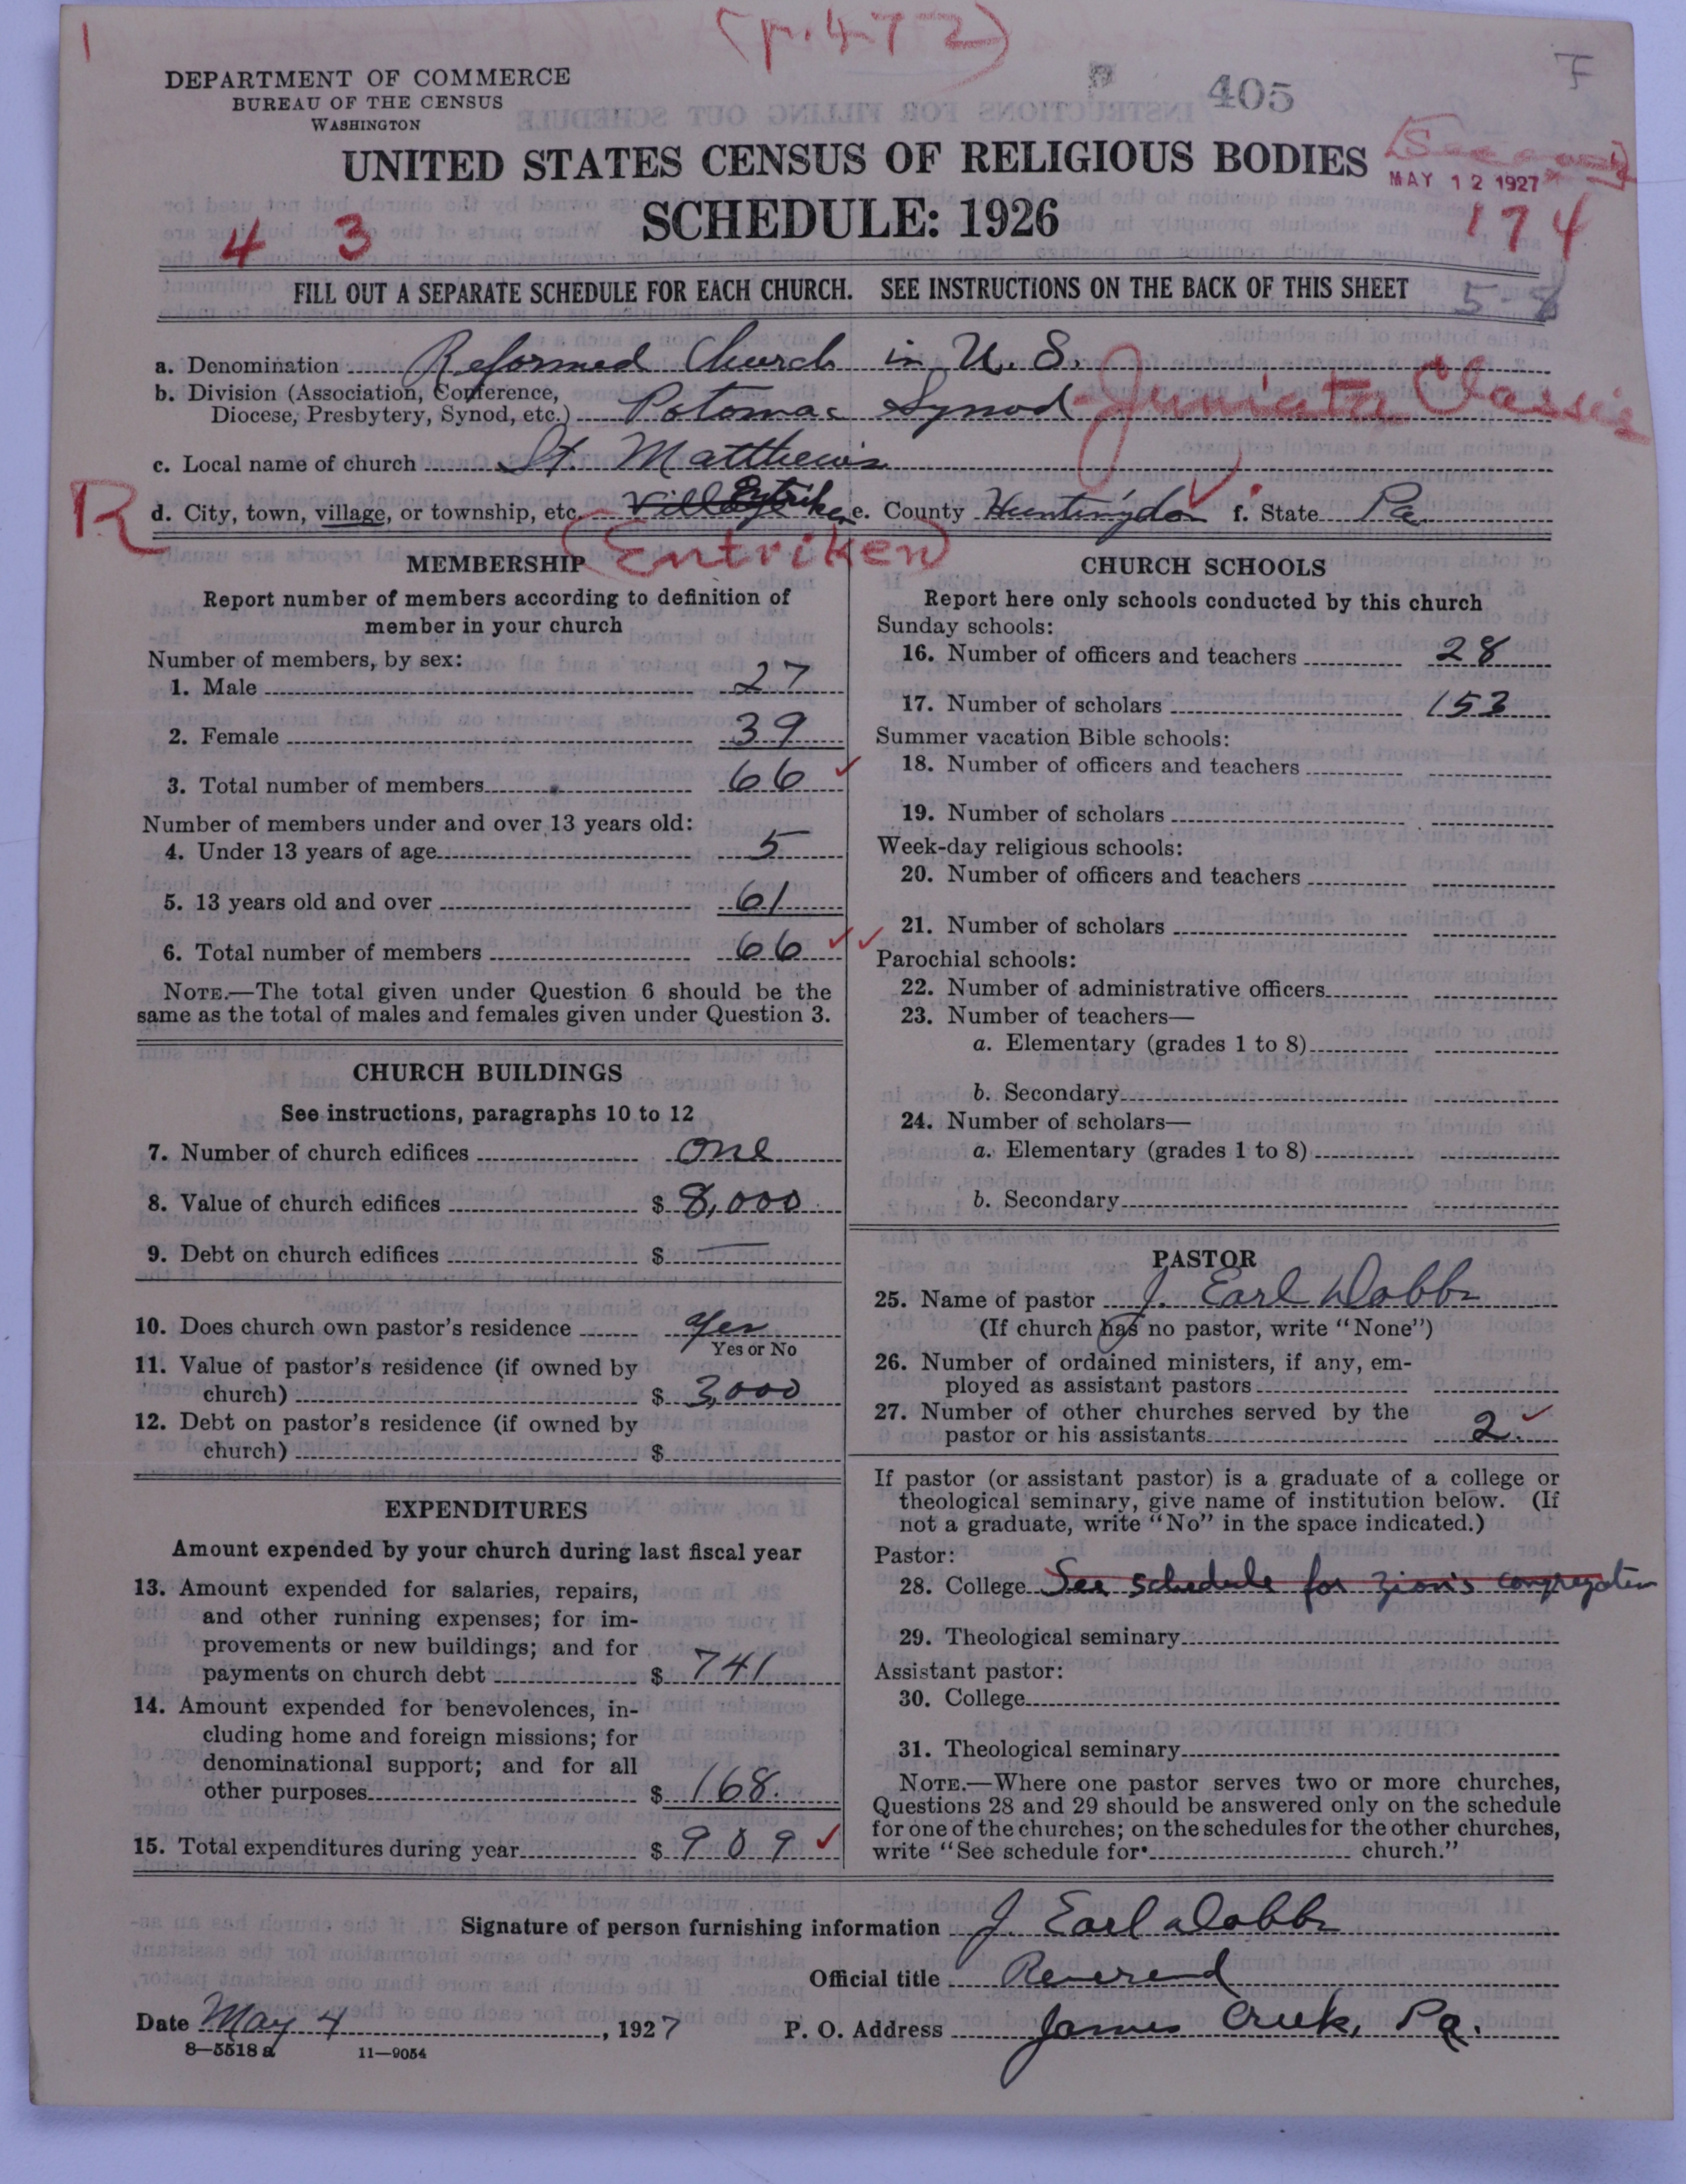 1
(p.472)
DEPARTMENT OF COMMERCE
BUREAU OF THE CENSUS
WASHINGTON
405
F
UNITED STATES CENSUS OF RELIGIOUS BODIES
MAY 12 1927
SCHEDULE: 1926
4 3
174
FILL OUT A SEPARATE SCHEDULE FOR EACH CHURCH. SEE INSTRUCTIONS ON THE BACK OF THIS SHEET
5-8
a. Denomination Reformed Church in U. S.
b. Division (Association, Conference,
Diocese, Presbytery, Synod, etc.) Potomac Synod Juniata Classis
c. Local name of church St. Matthew's
R
d. City, town, village, or township, etc. Village Entriken e. County Huntingdon f. State Pa.
(Entriken)
MEMBERSHIP
Report number of members according to definition of
member in your church
Number of members, by sex:
1. Male 27
2. Female 39
3. Total number of members 66 ✓
Number of members under and over 13 years old:
4. Under 13 years of age 5
5. 13 years old and over 61
6. Total number of members 66 ✓✓
NOTE.—The total given under Question 6 should be the
same as the total of males and females given under Question 3.
CHURCH BUILDINGS
See instructions, paragraphs 10 to 12
7. Number of church edifices one
8. Value of church edifices $ 8,000
9. Debt on church edifices $ —
10. Does church own pastor's residence Yes
Yes or No
11. Value of pastor's residence (if owned by
church) $ 3,000
12. Debt on pastor's residence (if owned by
church) $
EXPENDITURES
Amount expended by your church during last fiscal year
13. Amount expended for salaries, repairs,
and other running expenses; for im-
provements or new buildings; and for
payments on church debt $ 741
14. Amount expended for benevolences, in-
cluding home and foreign missions; for
denominational support; and for all
other purposes $ 168.
15. Total expenditures during year $ 909 ✓
CHURCH SCHOOLS
Report here only schools conducted by this church
Sunday schools:
16. Number of officers and teachers 28
17. Number of scholars 153
Summer vacation Bible schools:
18. Number of officers and teachers
19. Number of scholars
Week-day religious schools:
20. Number of officers and teachers
21. Number of scholars
Parochial schools:
22. Number of administrative officers
23. Number of teachers—
a. Elementary (grades 1 to 8)
b. Secondary
24. Number of scholars—
a. Elementary (grades 1 to 8)
b. Secondary
PASTOR
25. Name of pastor J. Earl Dobbs
(If church has no pastor, write "None")
26. Number of ordained ministers, if any, em-
ployed as assistant pastors
27. Number of other churches served by the
pastor or his assistants 2. ✓
If pastor (or assistant pastor) is a graduate of a college or
theological seminary, give name of institution below. (If
not a graduate, write "No" in the space indicated.)
Pastor:
28. College See schedule for Zion's congregation
29. Theological seminary
Assistant pastor:
30. College
31. Theological seminary
NOTE.—Where one pastor serves two or more churches,
Questions 28 and 29 should be answered only on the schedule
for one of the churches; on the schedules for the other churches,
write "See schedule for church."
Signature of person furnishing information J. Earl Dobbs
Official title Reverend
Date May 4, 1927 P. O. Address James Creek, Pa.
8—5518 a 11—9054